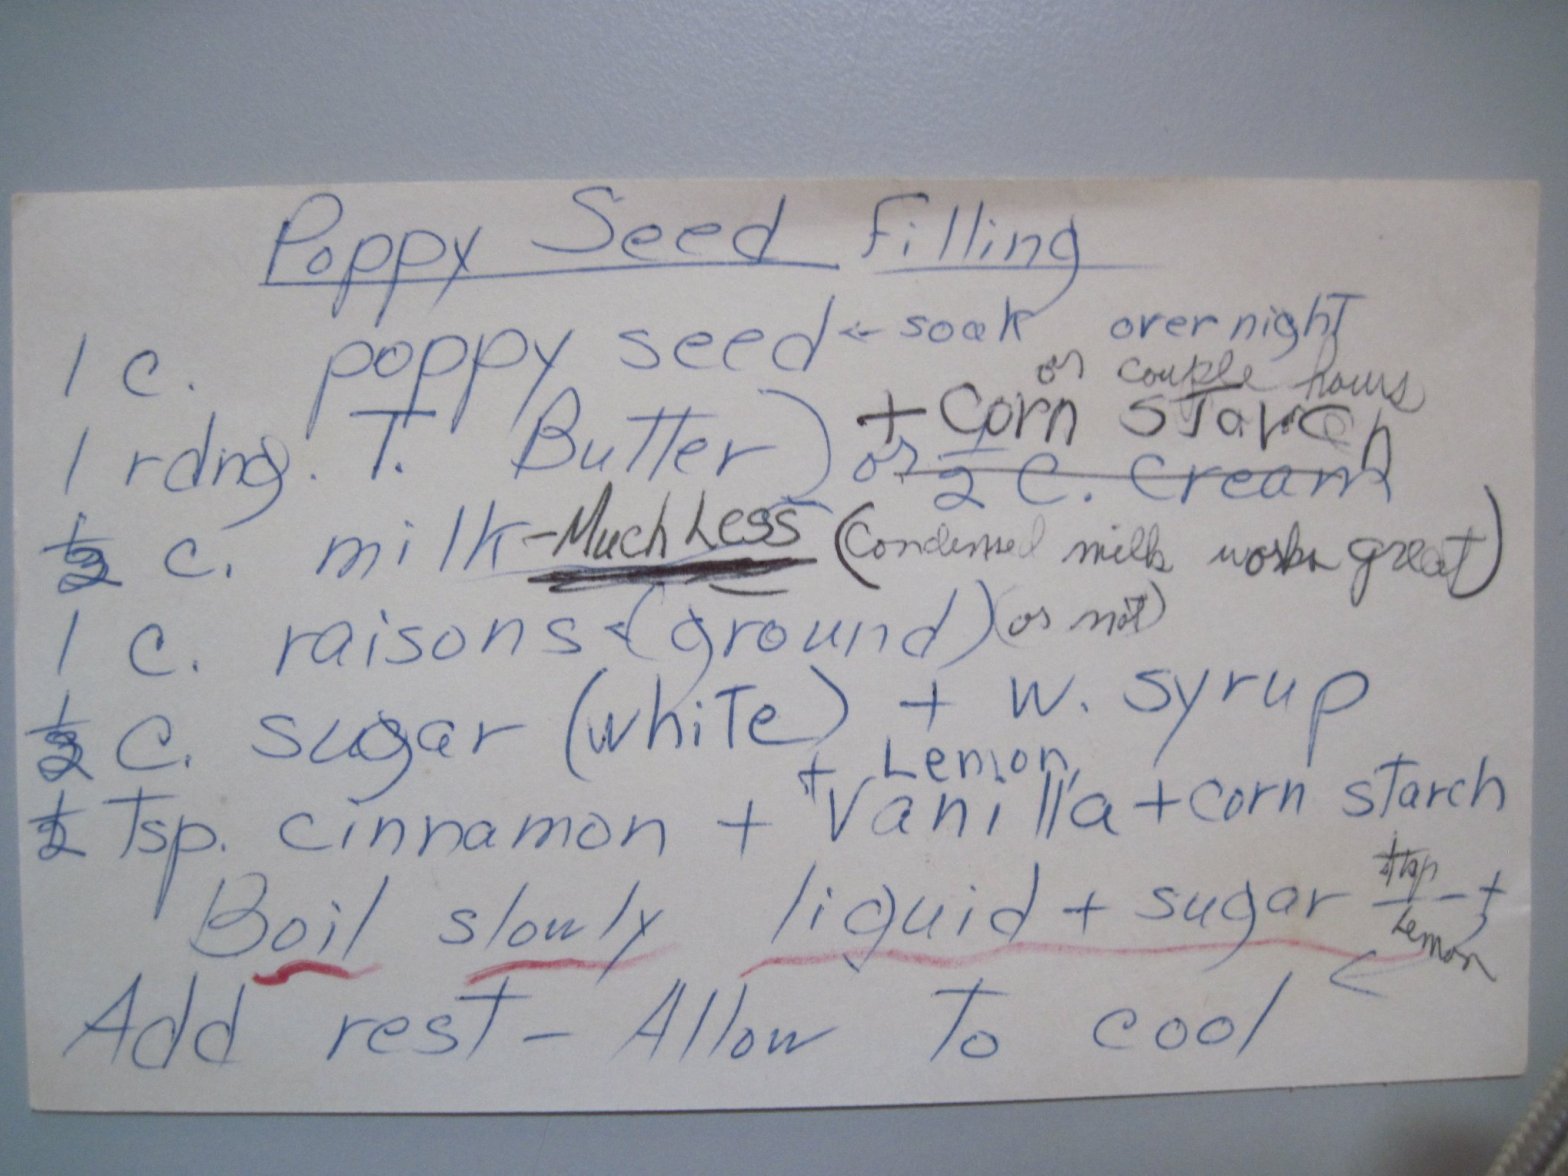 Poppy Seed Filling
1 c. poppy seed ← soak over night
or couple hours
1 rdng. T. Butter) + Corn STarch
or ½ C. Cream
½ c. milk - Much Less (Condensed milk works great)
1 c. raisons (ground) (or not)
½ C. sugar (white) + w. syrup
+ Lemon
½ Tsp. cinnamon + Vanilla + corn starch
Boil slowly liquid + sugar
Lemon
Add rest - Allow To cool